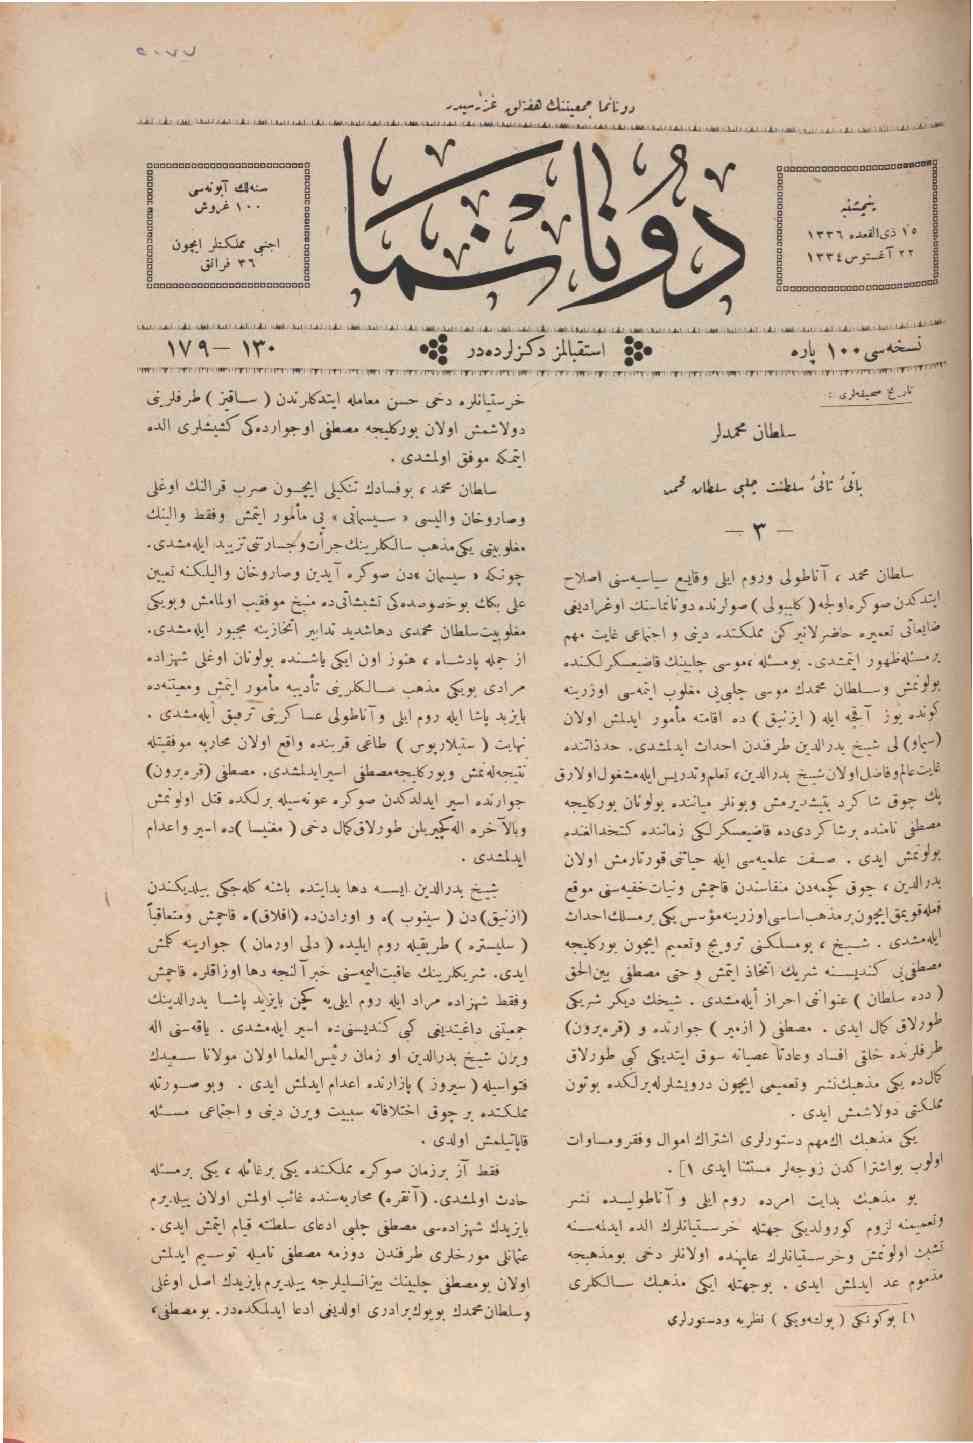 ٥٠٧٧
دونانما جمعیتنك هفته‌لق غزته‌سیدر
پنجشنبه
١٥ ذی‌القعده ١٣٣٦
٢٢ آغستوس ١٣٣٤
دوناتما
سنه‌لك آبونه‌سی
١٠٠ غروش
اجنبی مملكتلر ایچون
٣٦ فرانق
نسخه‌سی ١٠٠ پاره
استقبالمز دكزلرده‌در
١٣٠ – ١٧٩
تاریخ صحیفه‌لری :
سلطان محمدلر
بانیٔ ثانیٔ سلطنت چلبی سلطان محمد
— ٣ —
سلطان محمد ، آناطولی وروم ایلی وقایع سیاسیه‌سنی اصلاح
ایتدكدن صوكره اولجه ( كلیبولی ) صولرنده دونانماسنك اوغرادیغی
ضایعاتی تعمیره حاضرلانیركن مملكتده دینی و اجتماعی غایت مهم
بر مسئله ظهور ایتمشدی. بومسئله ، موسی چلبینك قاضیعسكرلكنده
بولونمش وسلطان محمدك موسی چلبی‌یی مغلوب ایتمه‌سی اوزرینه
كونده یوز آقچه ایله ( ایزنیق ) ده اقامته مأمور ایدلمش اولان
(سماو) لی شیخ بدرالدین طرفندن احداث ایدلمشدی. حدذاتنده
غایت عالم وفاضل اولان شیخ بدرالدین، تعلم وتدریس ایله مشغول اولارق
پك چوق شاكرد یتیشدیرمش وبونلر میاننده بولونان بوركلیجه
مصطفی نامنده بر شاكردی‌ده قاضیعسكرلكی زماننده كتخدالغنده
بولونمش ایدی . صفت علمیه‌سی ایله حیاتنی قورتارمش اولان
بدرالدین ، چوق كچمه‌دن منفاسندن قاچمش ونیات خفیه‌سنی موقع
فعله قویمق ایچون بر مذهب اساسی اوزرینه مؤسس یكی بر مسلك احداث
ایله‌مشدی . شیخ ، بومسلكنی ترویج وتعمیم ایچون بوركلیجه
مصطفی‌یی كندیسنه شریك اتخاذ ایتمش وحتی مصطفی بین‌الحق
( دده سلطان ) عنوانی احراز ایله‌مشدی . شیخك دیكر شریكی
طورلاق كمال ایدی . مصطفی ( ازمیر ) جوارنده و (قره‌برون)
طرفلرنده خلقی افساد وعادتا عصیانه سوق ایتدیكی كبی طورلاق
كمال‌ده یكی مذهبك نشر وتعمیمی ایچون درویشلرله برلكده بوتون
مملكتی دولاشمش ایدی .
یكی مذهبك اك مهم دستورلری اشتراك اموال وفقر ومساوات
اولوب بواشتراكدن زوجه‌لر مستثنا ایدی ١] .
بو مذهبك بدایت امرده روم ایلی و آناطولیده نشر
وتعمیمنه لزوم كورولدیكی جهتله خرستیانلرك الده ایدلمه‌سنه
تشبث اولونمش وخرستیانلرك علیهنده اولانلر دخی بومذهبجه
مذموم عد ایدلمش ایدی . بوجهتله ایكی مذهبك سالكلری
١] بوكونكی ( بولشه‌ویكی ) نظریه ودستورلری
خرستیانلره دخی حسن معامله ایتدكلرندن ( ساقیز ) طرفلرینی
دولاشمش اولان بوركلیجه مصطفی اوجوارده‌كی كشیشلری الده
ایتمكه موفق اولمشدی .
سلطان محمد ، بوفسادك تنكیلی ایچون صرب قرالنك اوغلی
وصاروخان والیسی « سیسمانی » یی مأمور ایتمش وفقط والینك
مغلوبیتی یكی مذهب سالكلرینك جرأت وجسارتنی تزیید ایله‌مشدی.
چونكه « سیسمان »دن صوكره آیدین وصاروخان والیلكنه تعیین
علی بكك بوخصوصده‌كی تشبثاتی‌ده منتج موفقیت اولمامش وبویكی
مغلوبیت سلطان محمدی دها شدید تدابیر اتخاذینه مجبور ایله‌مشدی.
از جمله پادشاه ، هنوز اون ایكی یاشنده بولونان اوغلی شهزاده
مرادی بویكی مذهب سالكلرینی تأدیبه مأمور ایتمش ومعیتنه‌ده
بایزید پاشا ایله روم ایلی و آناطولی عساكرینی ترفیق ایله‌مشدی .
نهایت ( ستیلاریوس ) طاغی قربنده واقع اولان محاربه موفقیتله
نتیجه‌له‌نمش وبوركلیجه مصطفی اسیر ایدلمشدی. مصطفی (قره‌برون)
جوارنده اسیر ایدلدكدن صوكره عونه‌سیله برلكده قتل اولونمش
وبالآخره اله كچیریلن طورلاق كمال دخی ( مغنیسا )ده اسیر واعدام
ایدلمشدی .
شیخ بدرالدین ایسه دها بدایتده باشنه كله‌جكی بیلدیكندن
(ازنیق) دن ( سینوب )ه و اورادن‌ده (افلاق)ه قاچمش ومتعاقباً
( سلیستره ) طریقیله روم ایلیده ( دلی اورمان ) جوارینه كلمش
ایدی. شریكلرینك عاقبت الیمه‌سنی خبر آلنجه دها اوزاقلره قاچمش
وفقط شهزاده مراد ایله روم ایلی‌یه كچن بایزید پاشا بدرالدینك
جمعیتنی داغیتدیغی كبی كندیسنی‌ده اسیر ایله‌مشدی . یاقه‌سنی اله
ویرن شیخ بدرالدین او زمان رئیس‌العلما اولان مولانا سعیدك
فتواسیله ( سیروز ) پازارنده اعدام ایدلمش ایدی . وبو صورتله
مملكتده بر چوق اختلافاته سببیت ویرن دینی و اجتماعی مسئله
قاپاتیلمش اولدی .
فقط آز برزمان صوكره مملكتده یكی بر غائله ، یكی بر مسئله
حادث اولمشدی. (آنقره) محاربه‌سنده غائب اولمش اولان ییلدیرم
بایزیدك شهزاده‌سی مصطفی چلبی ادعای سلطنته قیام ایتمش ایدی .
عثمانلی مورخلری طرفندن دوزمه مصطفی نامیله توسیم ایدلمش
اولان بومصطفی چلبینك بیزانسلیلرجه ییلدیرم بایزیدك اصل اوغلی
وسلطان محمدك بویوك برادری اولدیغی ادعا ایدلمكده‌در. بومصطفی،